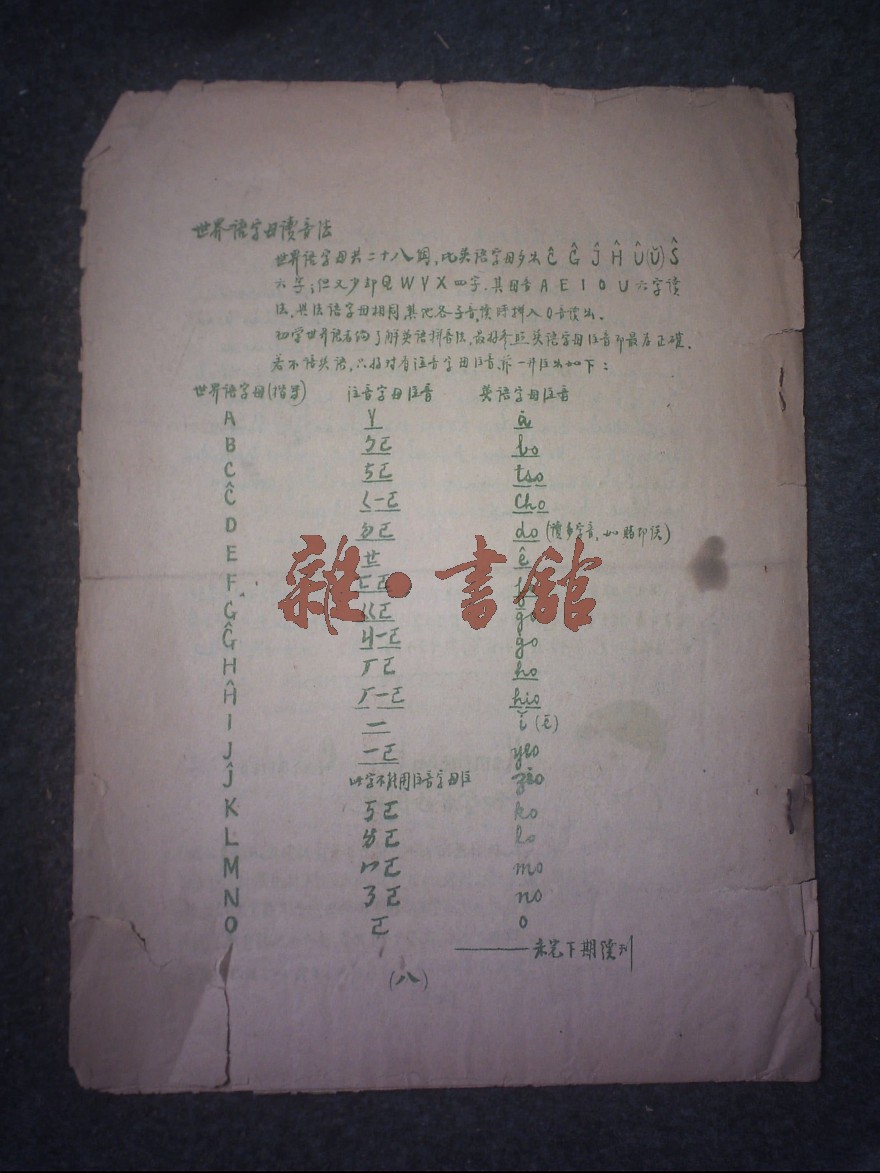 世界语字母读音法
世界语字母共二十八个，比英语字母多出 Ĉ Ĝ Ĵ Ĥ Û(Ŭ) Ŝ
六字；但又少却 Q W Y X 四字，其母音 A E I O U 六字读
法，与法语字母相同，其他各子音，读时拼入O音读出。
初学世界语者倘了解英语拼音法，最好参照英语字母注音即最为正确。
若不谙英语，只好对看注音字母注音，兹一并注出如下：
世界语字母(楷书) 注音字母注音 英语字母注音
A ㄚ ȧ
B ㄅㄛ bo
C ㄘㄛ tso
Ĉ ㄑㄧㄛ cho
D ㄉㄛ do (读多字音，如赌即误)
E ㄝ ê
F ㄈㄛ fo
G ㄍㄛ go
Ĝ ㄐㄧㄛ go
H ㄏㄛ ho
Ĥ ㄏㄧㄛ hio
I ㄧ ĭ (ē)
J ㄧㄛ yeo
Ĵ 此字不能用注音字母注 zio
K ㄎㄛ ko
L ㄌㄛ lo
M ㄇㄛ mo
N ㄋㄛ no
O ㄛ o
———未完下期续刊
(八)
雜·書館